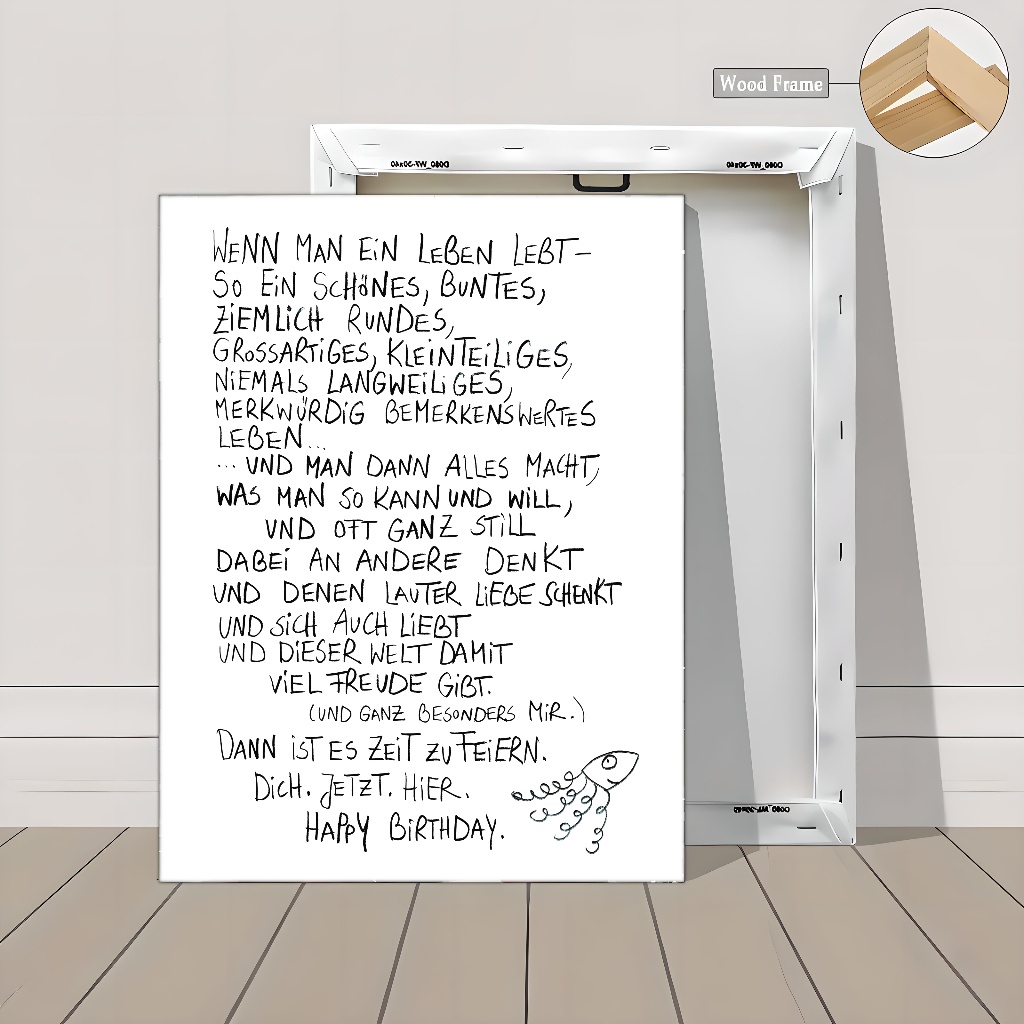 Wood Frame
WENN MAN EIN LEBEN LEBT–
SO EIN SCHÖNES, BUNTES,
ZIEMLICH RUNDES,
GROSSARTIGES, KLEINTEILIGES,
NIEMALS LANGWEILIGES,
MERKWÜRDIG BEMERKENSWERTES
LEBEN...
... UND MAN DANN ALLES MACHT,
WAS MAN SO KANN UND WILL,
UND OFT GANZ STILL
DABEI AN ANDERE DENKT
UND DENEN LAUTER LIEBE SCHENKT
UND SICH AUCH LIEBT
UND DIESER WELT DAMIT
VIEL FREUDE GIBT.
(UND GANZ BESONDERS MIR.)
DANN IST ES ZEIT ZU FEIERN.
DICH. JETZT. HIER.
HAPPY BIRTHDAY.